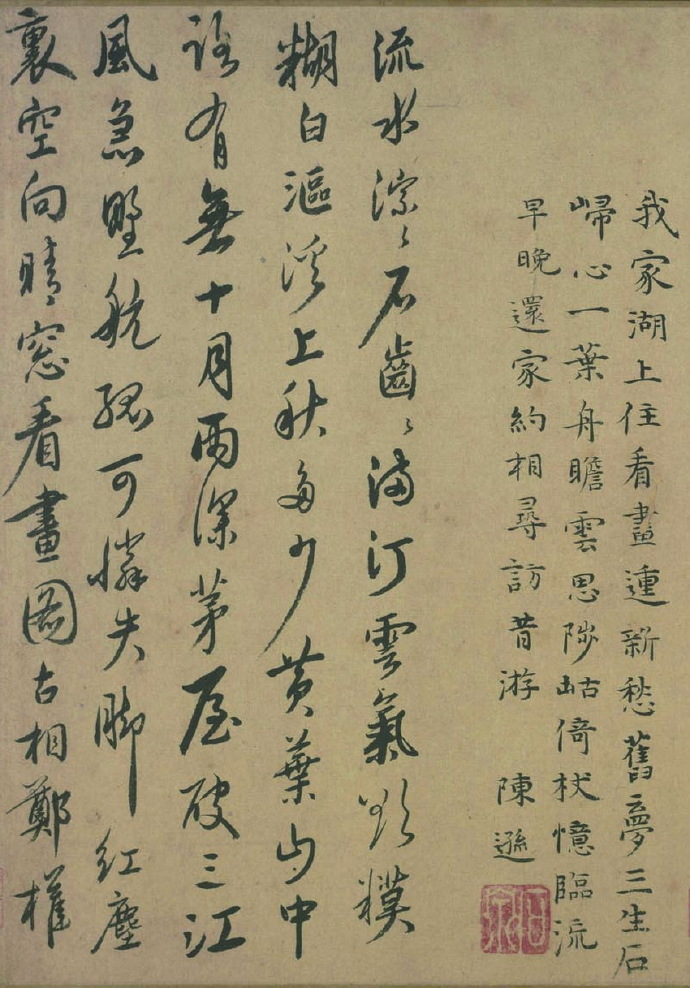 我家湖上住看畫連新愁舊夢三生石
歸心一葉舟瞻雲思陟岵倚杖憶臨流
早晚還家約相尋訪昔游 陳遜
流水淙〻石齒〻滿汀雲氣欲糢
糊白漚溪上秋多少黃葉山中
路有無十月雨深茅屋破三江
風急野航孤可憐失腳紅塵
裏空向晴窓看畫圖古相鄭權